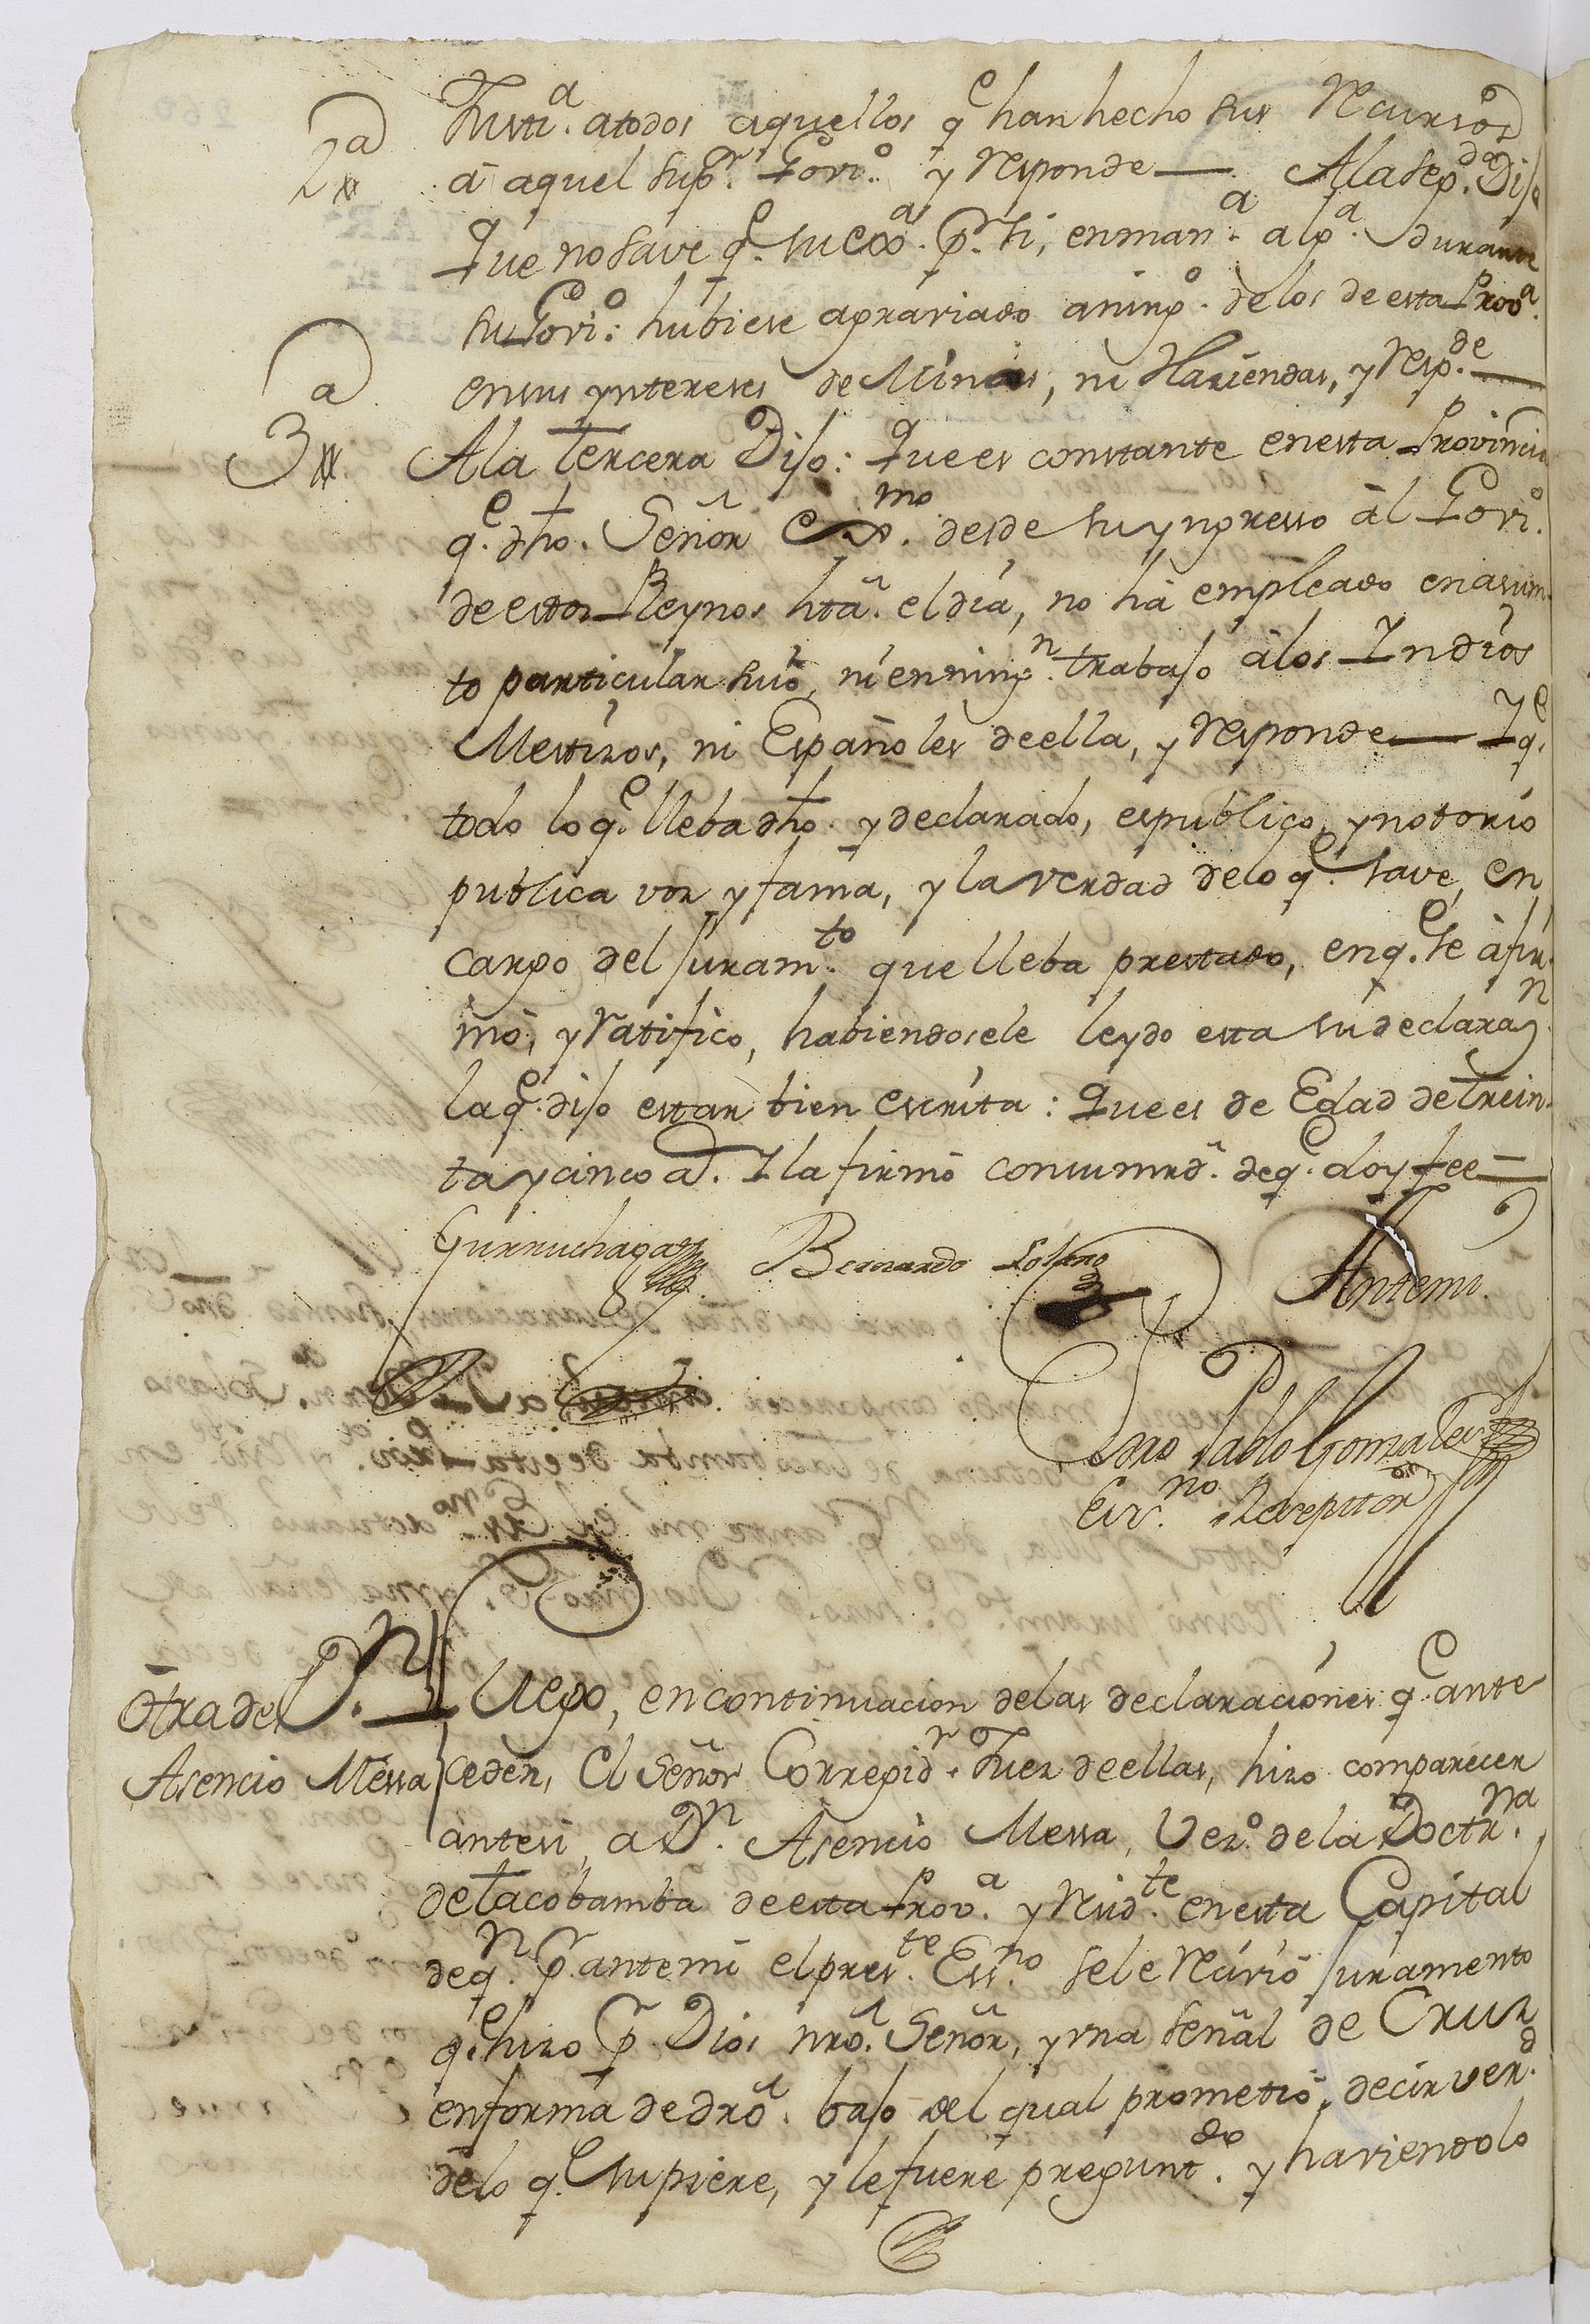 Justi.ª atodos aquellos q.e han hecho sus Recursos
2ª
á aquel Sup.r Govi.o y responde — Ala Seg.da Dijo
Que no save q.e su Exª. p.r si, en man.ª alg.ª durante
su Govi.o hubiese agraviado a ning.o de los de esta Prov.ª
en sus yntereses de Minas, ni Haciendas, y resp.de —
3ª
Ala tercera Dijo: Que es constante en esta Provincia
q.e dho. Señor Ex.mo desde su yngresso ál Govi.o
de estos Reynos htã. el día, no há empleado en asum-
to particular suio, ni en ning.n trabajo álos Indios
Mestizos, ni Españoles de ella, y responde — Y q.e
todo lo q.e lleba dho. y declarado, es publico, y notorio
publica voz y fama, y la verdad de lo q.e save, en
cargo del juram.to que lleba prestado, en q.e se afir-
mó, y ratifico, habiendosele leydo esta su declaraz.n
la q.e dijo estar bien escrita: Que es de Edad de trein-
ta y cinco a.s Y la firmó con su mrd. de q.e doy fee =
Gurruchaga Bernardo Solano Antemi.
Dno Pablo Gomalez
Esc.no Receptor
Otra de D.n Luego, en continuacion de las declaraciónes q.e ante
Asencio Messa ceden, El Señor Corregid.r Juez de ellas, hizo comparecer
antesi, a D.n Asencio Messa, Vez.o de la Doctr.na
de tacobamba de esta Prov.ª y resid.te en esta Capital
de q.n p.r ante mi el pres.te Ess.no se le recivió juramento
q.e hizo p.r Dios nró. Señor, y vna señal de Cruz
en forma de dró. bajo del qual prometió, decir ver.d
de lo q.e supiere, y le fuere pregunt.do y haviendolo